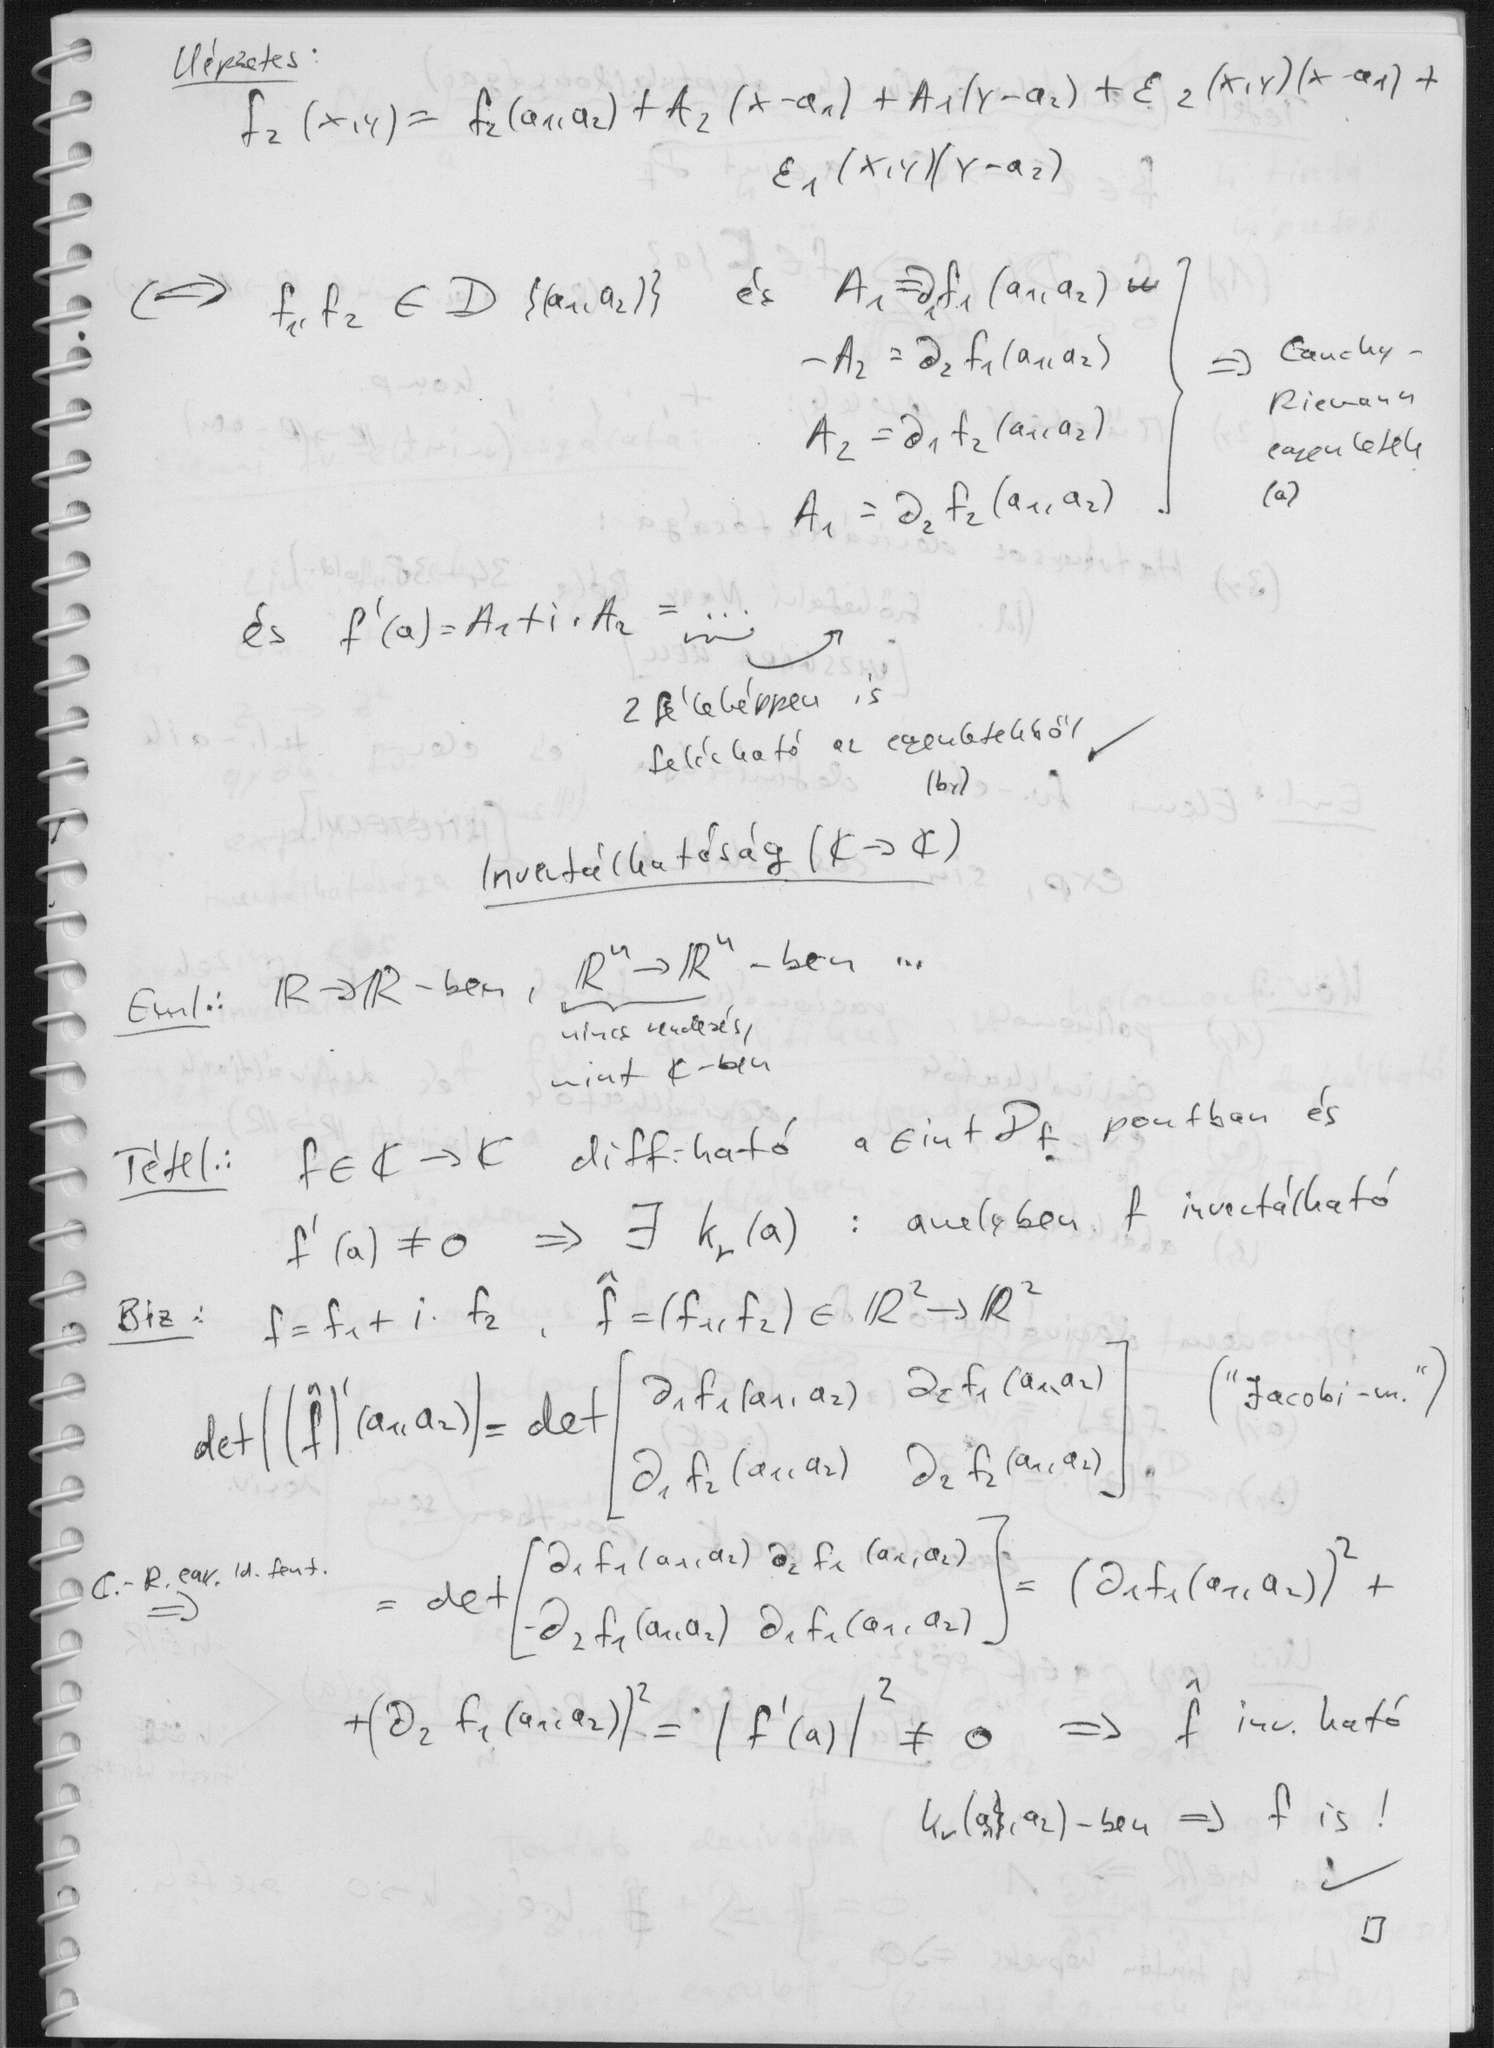 Képzetes:
f₂(x,y) = f₂(a₁,a₂) + A₂(x-a₁) + A₁(y-a₂) + ε₂(x,y)(x-a₁) +
ε₁(x,y)(y-a₂)
(⟺ f₁, f₂ ∈ D{(a₁,a₂)} és A₁ = ∂₁f₁(a₁,a₂)
-A₂ = ∂₂f₁(a₁,a₂)
A₂ = ∂₁f₂(a₁,a₂)
A₁ = ∂₂f₂(a₁,a₂)
⇒ Cauchy-
Riemann
egyenletek
(a)
és f'(a) = A₁ + i·A₂ = ...
2 féleképpen is
felírható az egyenletekből ✓
(b)
Invertálhatóság (K → K)
Eml.: R→R-ben, Rⁿ→Rⁿ-ben ...
nincs rendezés,
mint K-ben
Tétel.: f ∈ K → K diff.ható a ∈ int D_f pontban és
f'(a) ≠ 0 ⇒ ∃ k_r(a) : amelyben f invertálható
Biz: f = f₁ + i·f₂, f̂ = (f₁,f₂) ∈ R² → R²
det((f̂)'(a₁,a₂)) = det [∂₁f₁(a₁,a₂) ∂₂f₁(a₁,a₂)
∂₁f₂(a₁,a₂) ∂₂f₂(a₁,a₂)] ("Jacobi-m.")
C.-R. egy. ld. fent. ⇒
= det [∂₁f₁(a₁,a₂) ∂₂f₁(a₁,a₂)
-∂₂f₁(a₁,a₂) ∂₁f₁(a₁,a₂)] = (∂₁f₁(a₁,a₂))² +
+(∂₂f₁(a₁,a₂))² = |f'(a)|² ≠ 0 ⇒ f̂ inv. ható
k_r(a₁,a₂)-ben ⇒ f is!
✓
□